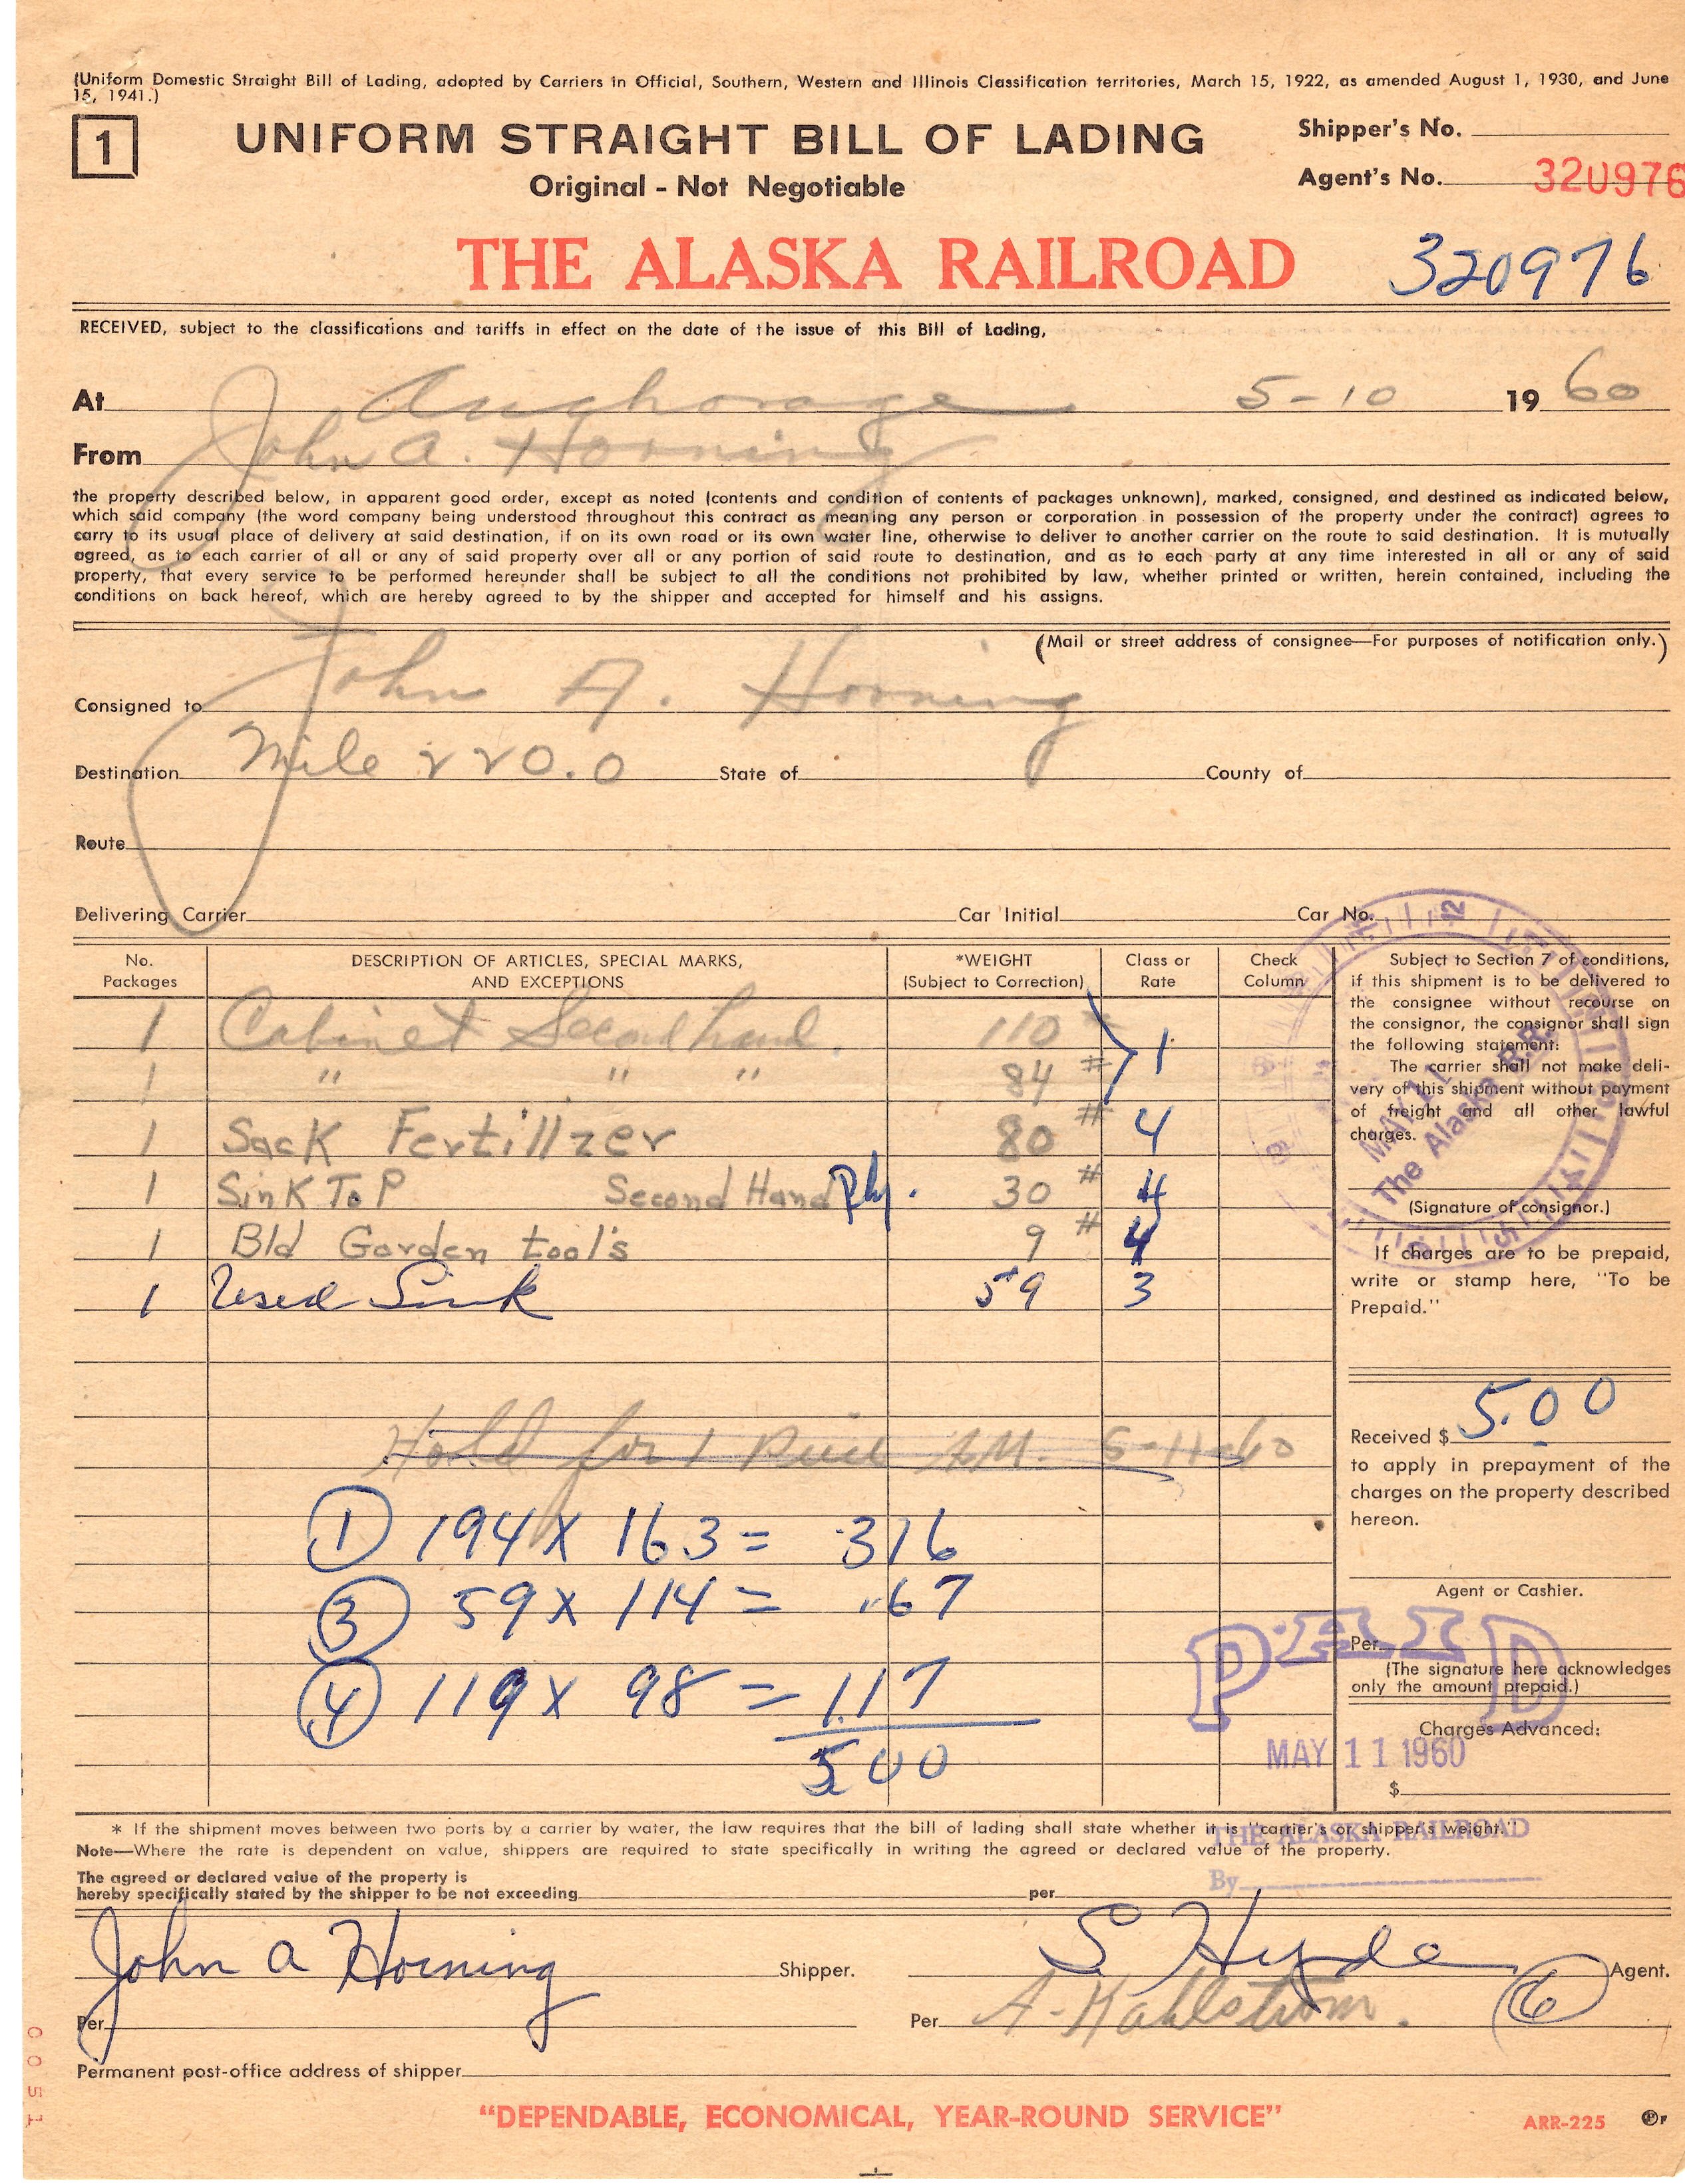 (Uniform Domestic Straight Bill of Lading, adopted by Carriers in Official, Southern, Western and Illinois Classification territories, March 15, 1922, as amended August 1, 1930, and June
15, 1941.)
1
UNIFORM STRAIGHT BILL OF LADING
Original - Not Negotiable
Shipper's No.
Agent's No. 320976
THE ALASKA RAILROAD
320976
RECEIVED, subject to the classifications and tariffs in effect on the date of the issue of this Bill of Lading,
At Anchorage 5-10 1960
From John A. Horning
the property described below, in apparent good order, except as noted (contents and condition of contents of packages unknown), marked, consigned, and destined as indicated below,
which said company (the word company being understood throughout this contract as meaning any person or corporation in possession of the property under the contract) agrees to
carry to its usual place of delivery at said destination, if on its own road or its own water line, otherwise to deliver to another carrier on the route to said destination. It is mutually
agreed, as to each carrier of all or any of said property over all or any portion of said route to destination, and as to each party at any time interested in all or any of said
property, that every service to be performed hereunder shall be subject to all the conditions not prohibited by law, whether printed or written, herein contained, including the
conditions on back hereof, which are hereby agreed to by the shipper and accepted for himself and his assigns.
(Mail or street address of consignee—For purposes of notification only.)
Consigned to John A. Horning
Destination Mile 220.0 State of County of
Route
Delivering Carrier Car Initial Car No.
No. Packages
DESCRIPTION OF ARTICLES, SPECIAL MARKS,
AND EXCEPTIONS
*WEIGHT
(Subject to Correction)
Class or
Rate
Check
Column
1 Cabinet Second hand. 110 #
1 " " " 84 # 1
1 Sack Fertillzer 80 # 4
1 Sink ToP Second Hand Ply. 30 # 4
1 Bld Garden tool's 9 # 4
1 Used Sink 59 3
Hold for 1 AM. 5-11-60
1 194 x 163 = 316
3 59 x 114 = .67
4 119 x 98 = 1.17
500
Subject to Section 7 of conditions,
if this shipment is to be delivered to
the consignee without recourse on
the consignor, the consignor shall sign
the following statement:
The carrier shall not make deli-
very of this shipment without payment
of freight and all other lawful
charges.
(Signature of consignor.)
12
MAY 11
The Alaska R.R.
If charges are to be prepaid,
write or stamp here, "To be
Prepaid."
Received $ 5.00
to apply in prepayment of the
charges on the property described
hereon.
Agent or Cashier.
Per
(The signature here acknowledges
only the amount prepaid.)
Charges Advanced:
$
PAID
MAY 11 1960
THE ALASKA RAILROAD
By
* If the shipment moves between two ports by a carrier by water, the law requires that the bill of lading shall state whether it is "carrier's or shipper's weight."
Note—Where the rate is dependent on value, shippers are required to state specifically in writing the agreed or declared value of the property.
The agreed or declared value of the property is
hereby specifically stated by the shipper to be not exceeding per
John A Horning Shipper. S Hyde Agent.
Per Per A. Kahlstrom. 6
Permanent post-office address of shipper
0051
"DEPENDABLE, ECONOMICAL, YEAR-ROUND SERVICE"
ARR-225